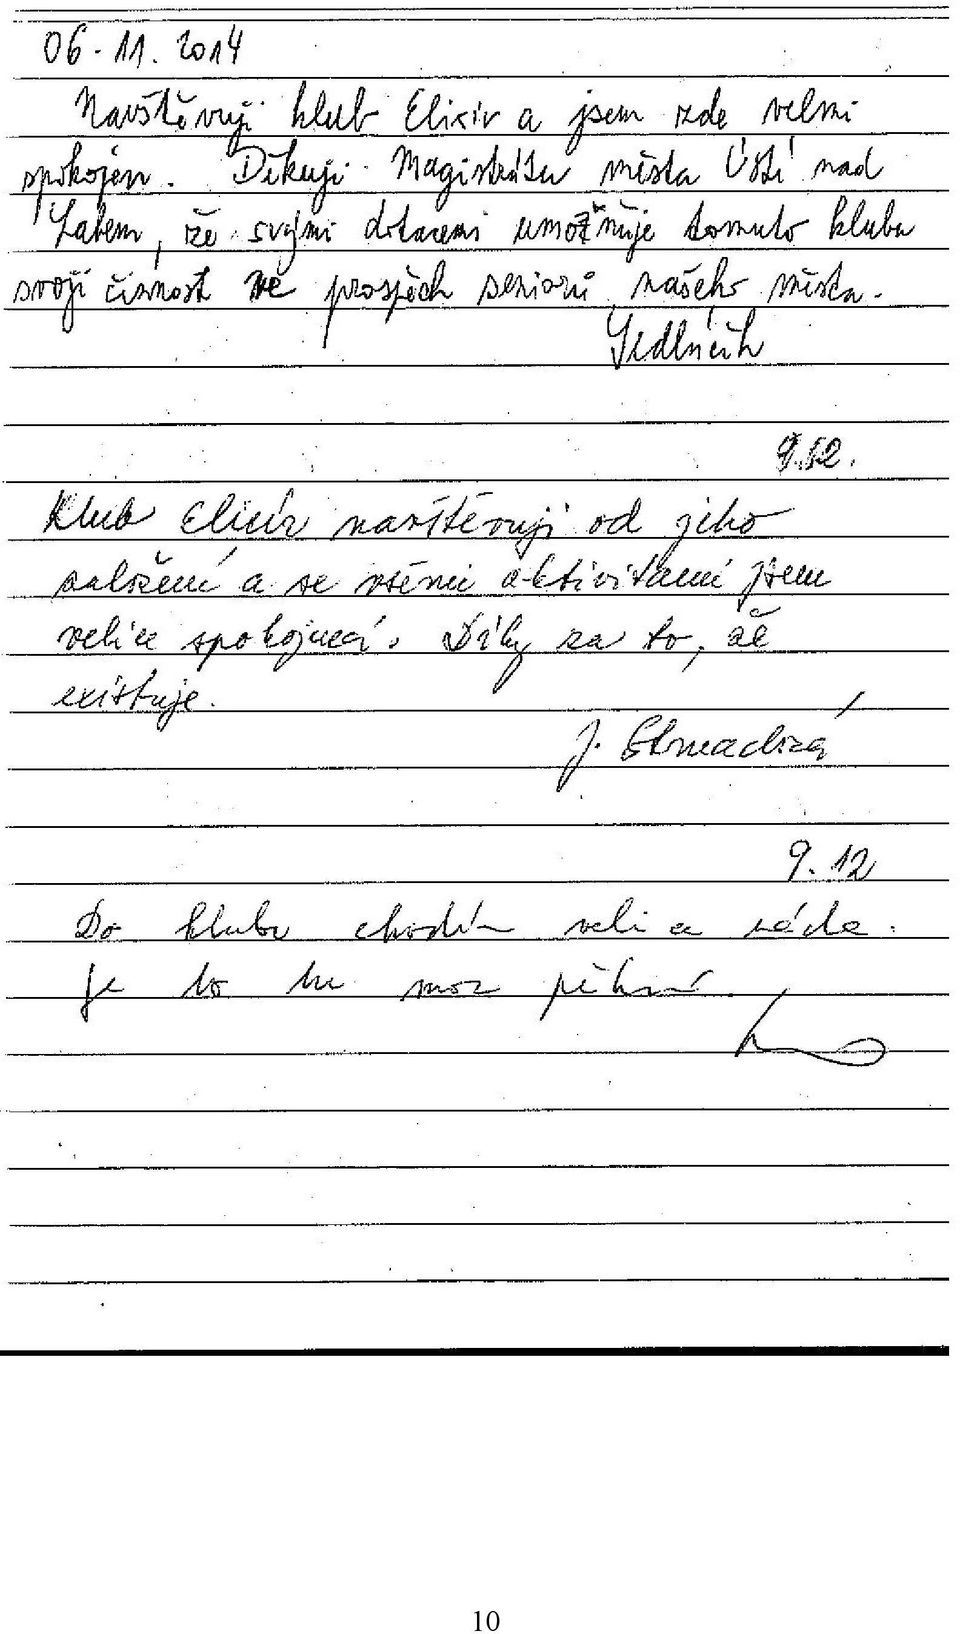 06. 11. 2014
Navštěvuji klub Elixir a jsem zde velmi
spokojen. Děkuji Magistrátu města Ústí nad
Labem, že svými dotacemi umožňuje tomuto klubu
svojí činnost ve prospěch seniorů našeho města.
9.12.
Klub Elixír navštěvuji od jeho
založení a se všemi aktivitami jsem
velice spokojená. Díky za to, že
existuje.
J.
9. 12
Do klubu chodím velice ráda.
Je to tu moc pěkné.
10